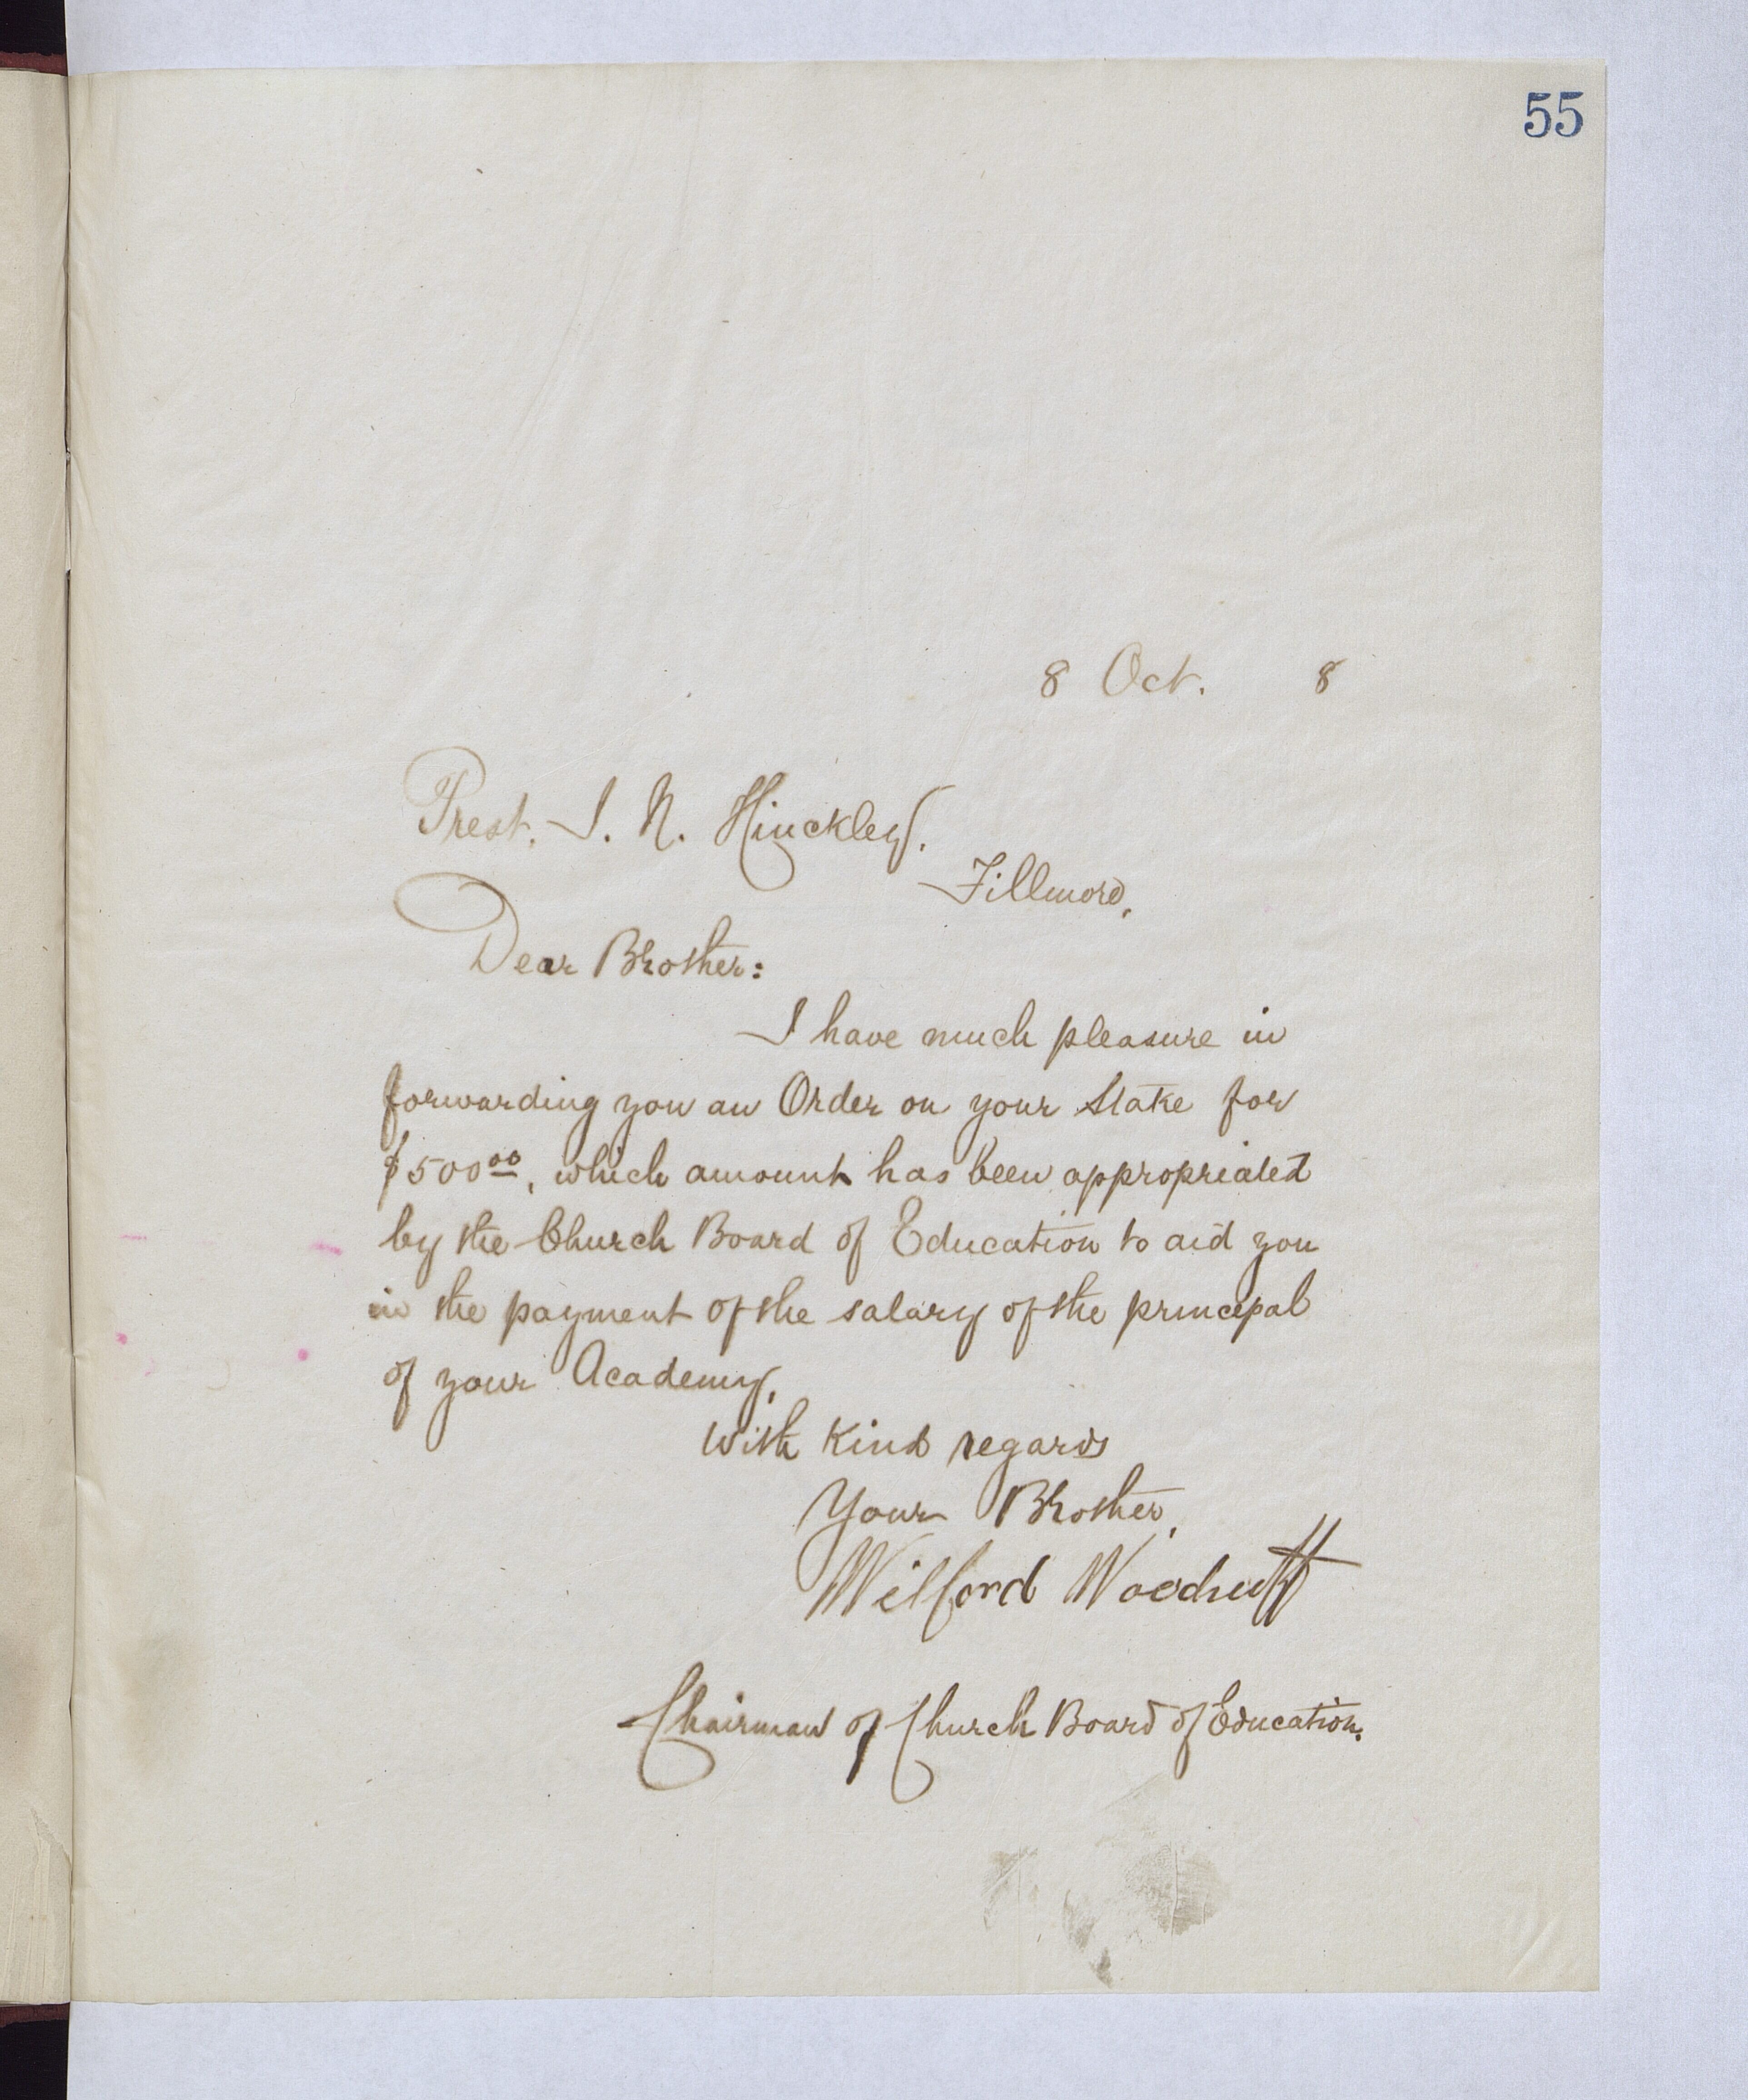 55
8 Oct. 8
Prest. I. N. Hinckley.
Fillmore,
Dear Brother:
I have much pleasure in
forwarding you an Order on your Stake for
$500.00, which amount has been appropriated
by the Church Board of Education to aid you
in the payment of the salary of the principal
of your Academy.
With kind regards
Your Brother,
Wilford Woodruff
Chairman of Church Board of Education.